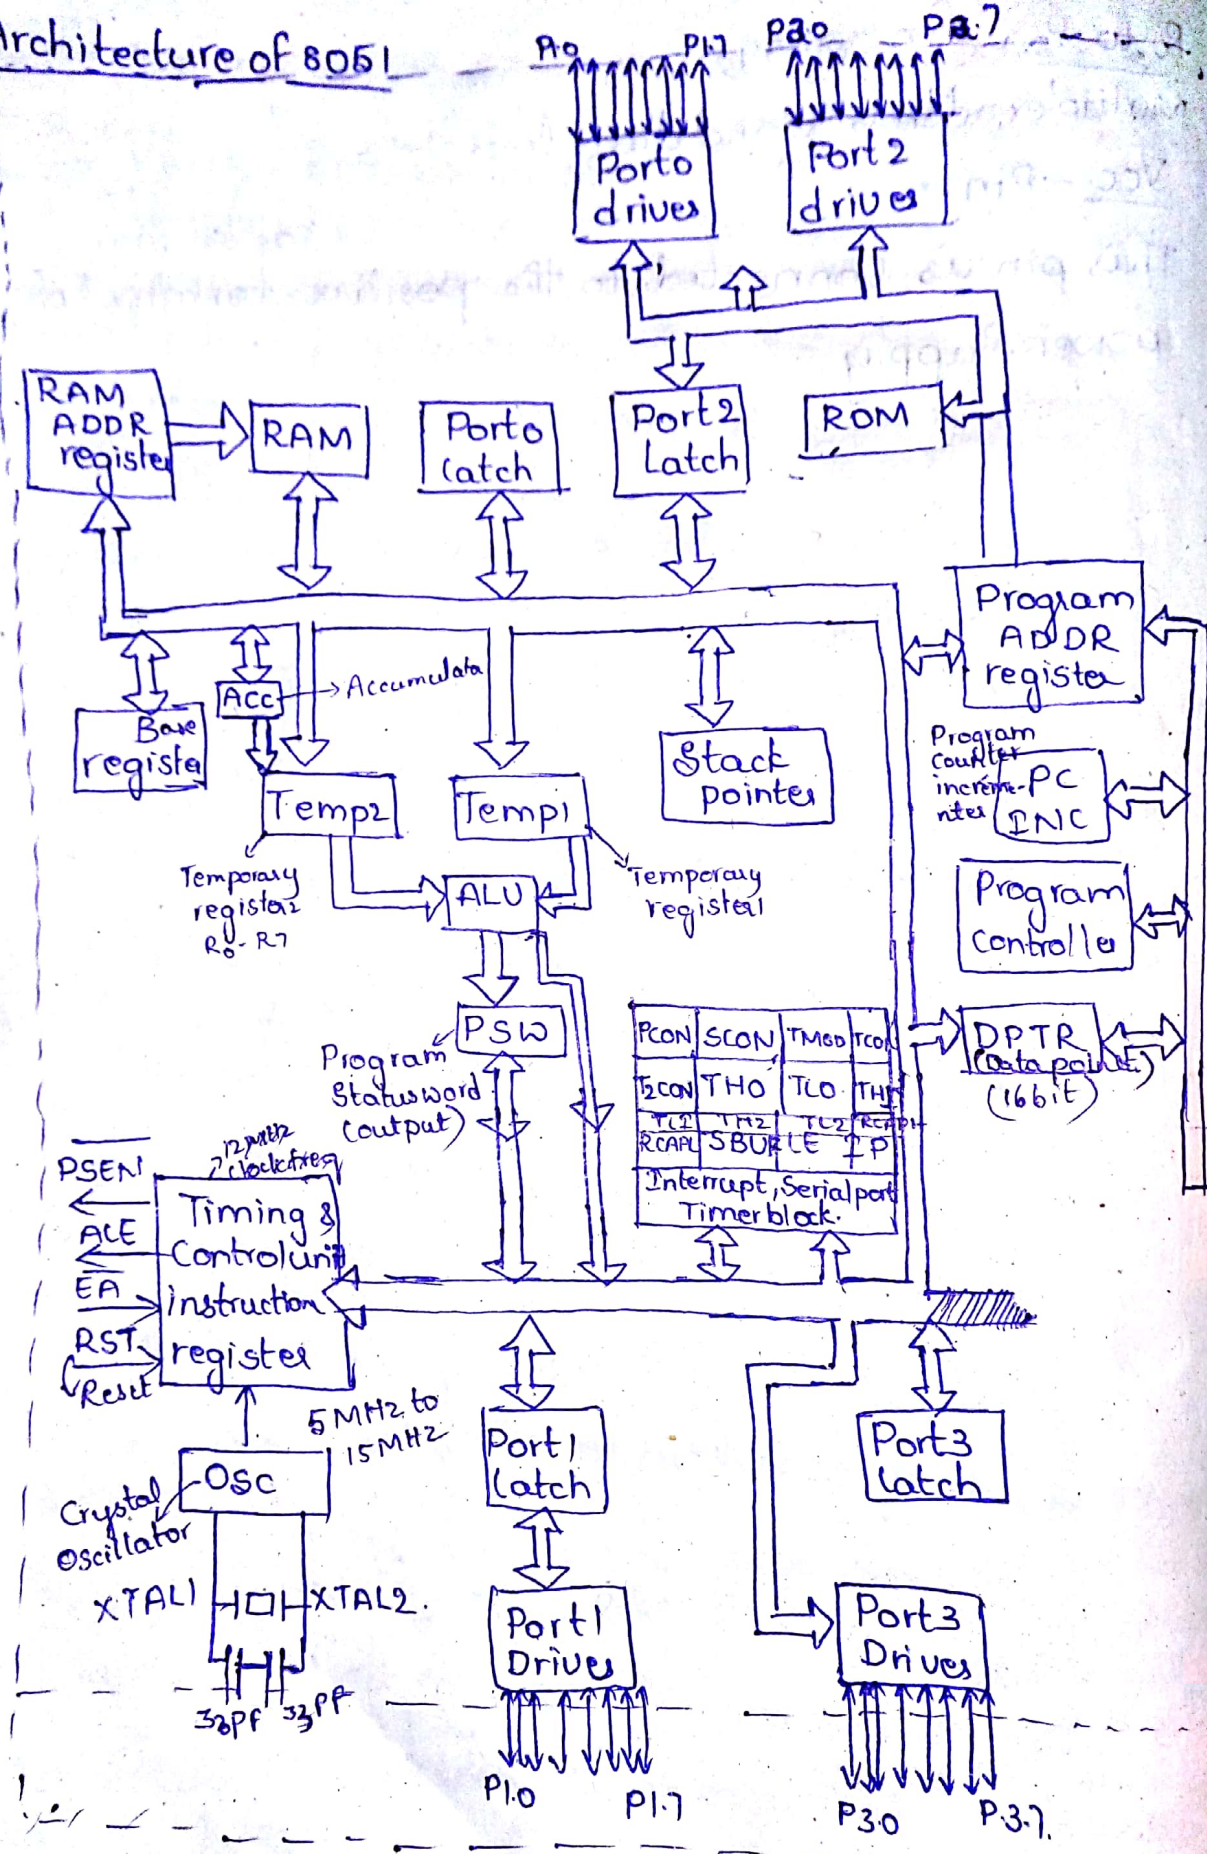 Architecture of 8051
P1.7
P2.0
Port0
drives
Port 2
drives
RAM
ADDR
register
RAM
Port0
Latch
Port2
Latch
ROM
Program
ADDR
register
Base
register
ACC
Accumulata
Temp2
Temp1
Stack
pointer
Program
Counter
increme-
nter
PC
INC
Temporary
register2
R0-R7
ALU
Temporary
register1
Program
Controller
PSW
Program
Status word
(output)
PCON SCON TMOD TCON
T2CON TH0 TL0 TH1
TL1 TH2 TL2 RCAPH
RCAPL SBUF IE IP
Interrupt, Serial port
Timer block.
DPTR
(Data pointer)
(16 bit)
12 MHz
clock freq
PSEN
ALE
EA
RST
Reset
Timing &
Control unit
instruction
register
5 MHz to
15 MHz
OSC
Crystal
Oscillator
XTAL1
XTAL2.
33pf 33pf
Port1
Latch
Port3
Latch
Port1
Drives
Port3
Drives
P1.0
P1.7
P3.0
P.3.7.